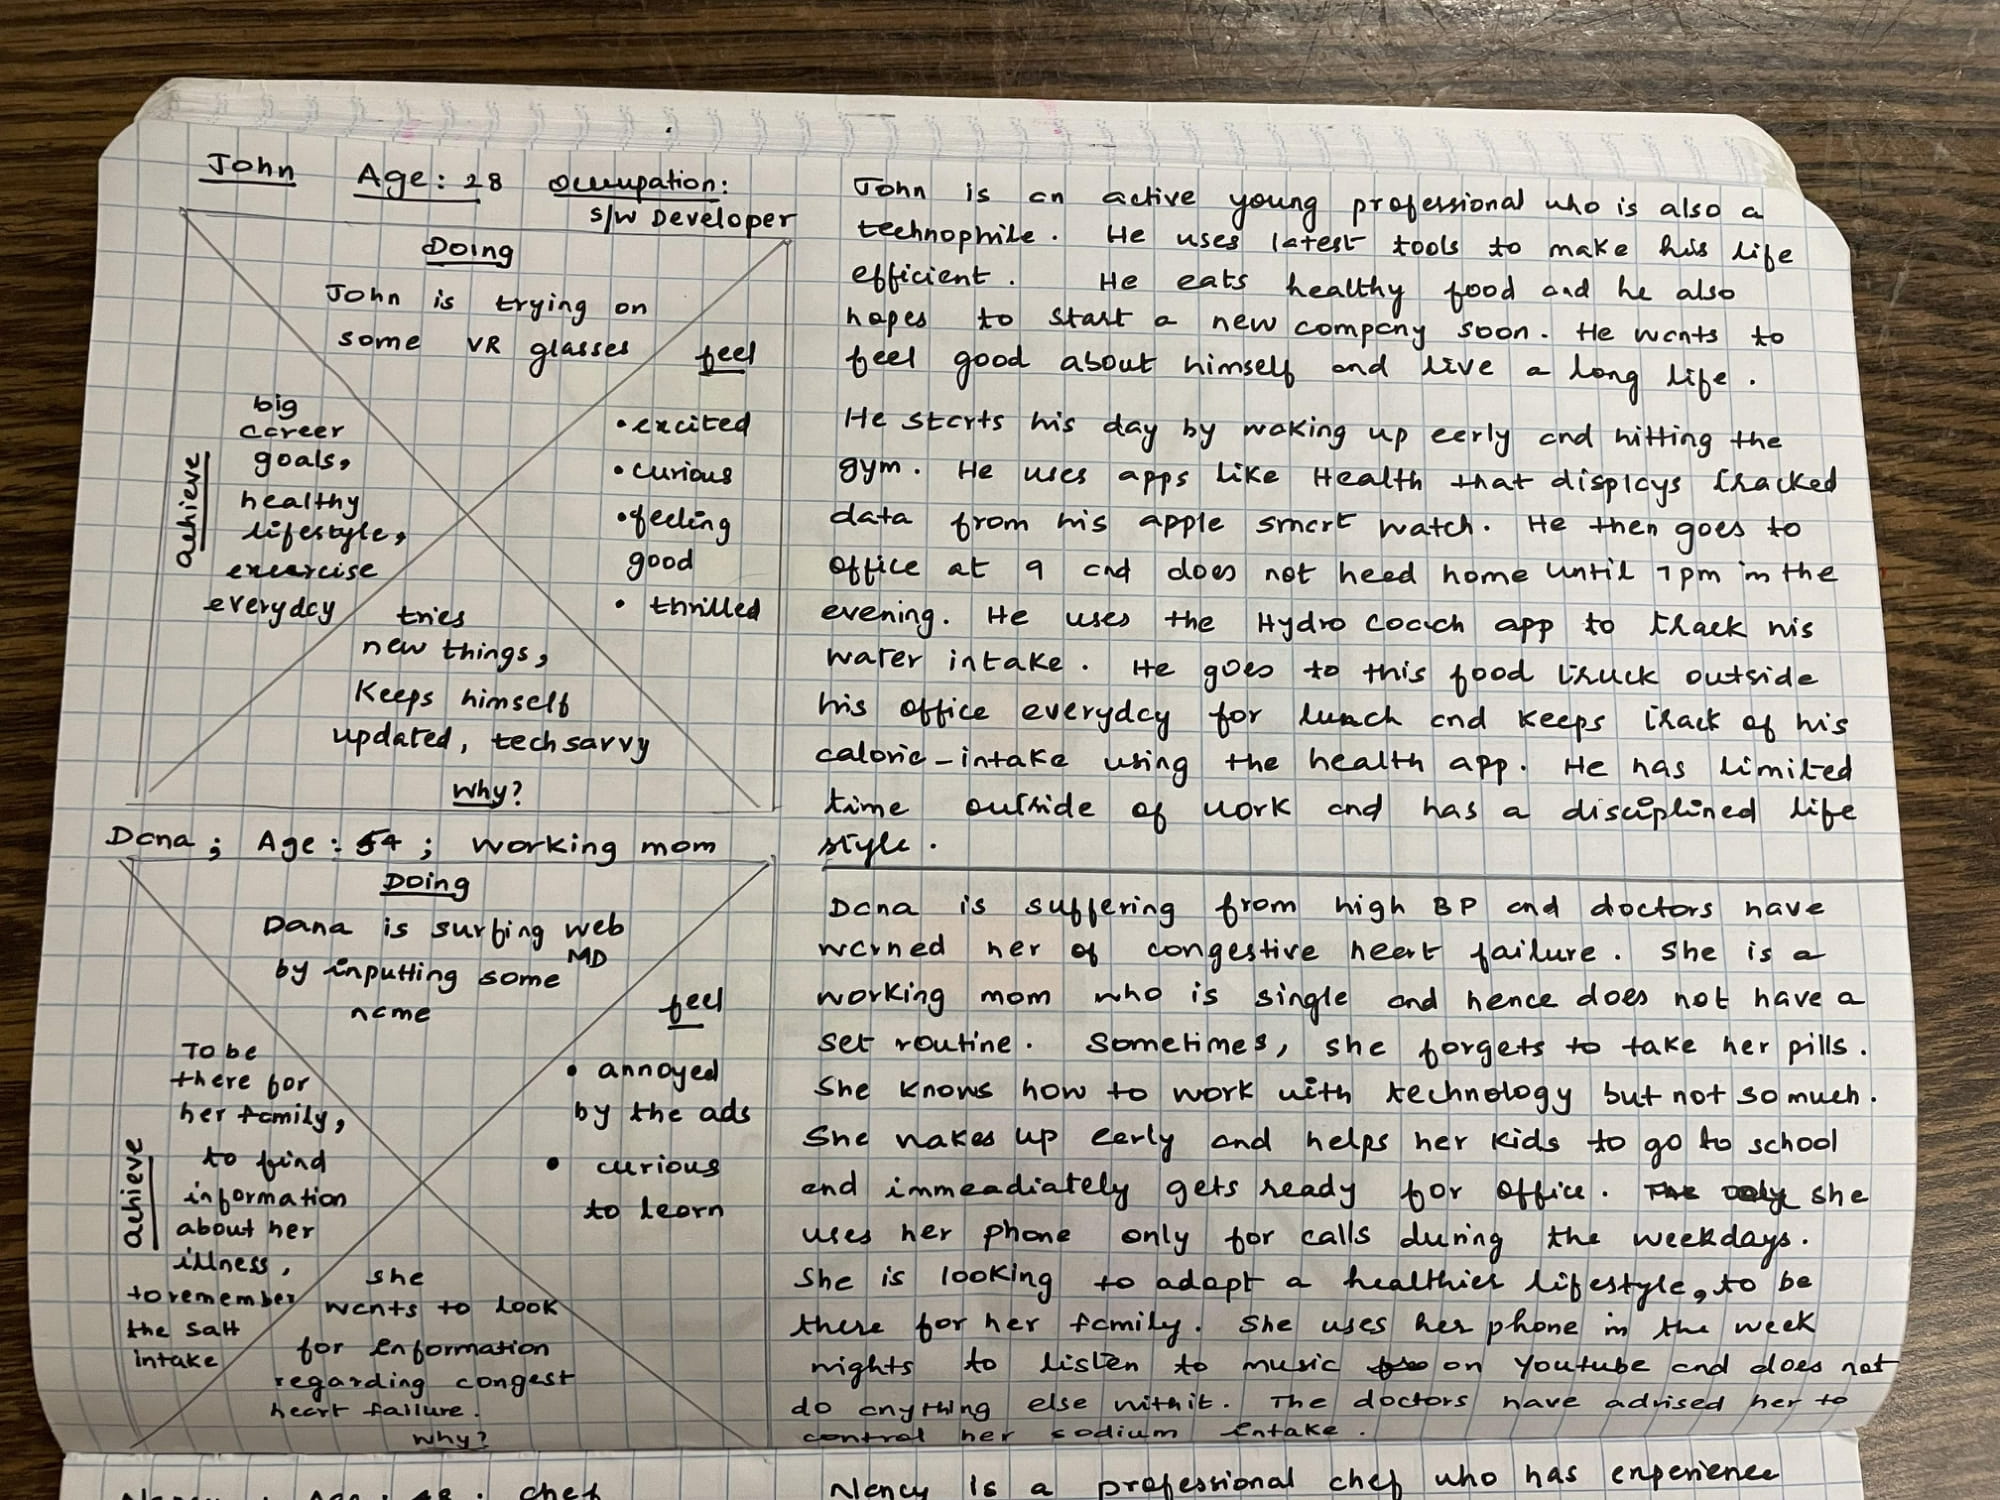 John Age: 28 Occupation:
s/w Developer
Doing
John is trying on
some VR glasses
feel
• excited
• curious
• feeling
good
• thrilled
achieve
big
career
goals,
healthy
lifestyle,
excercise
everyday
tries
new things,
Keeps himself
updated, tech savvy
Why?
John is an active young professional who is also a
technophile. He uses latest tools to make his life
efficient. He eats healthy food and he also
hopes to start a new company soon. He wants to
feel good about himself and live a long life.
He starts his day by waking up early and hitting the
gym. He uses apps like Health that displays tracked
data from his apple smart watch. He then goes to
office at 9 and does not head home until 7pm in the
evening. He uses the Hydro Coach app to track his
water intake. He goes to this food truck outside
his office everyday for lunch and keeps track of his
calorie-intake using the health app. He has limited
time outside of work and has a disciplined life
style.
Dana; Age: 54; working mom
Doing
Dana is surfing web
MD
by inputting some
name
feel
• annoyed
by the ads
• curious
to learn
achieve
To be
there for
her family,
to find
information
about her
illness,
to remember
the salt
intake
she
wants to look
for information
regarding congest
heart failure.
Why?
Dana is suffering from high BP and doctors have
warned her of congestive heart failure. She is a
working mom who is single and hence does not have a
set routine. Sometimes, she forgets to take her pills.
She knows how to work with technology but not so much.
She wakes up early and helps her kids to go to school
and immeadiately gets ready for office. she
uses her phone only for calls during the weekdays.
She is looking to adapt a healthier lifestyle, to be
there for her family. She uses her phone in the week
nights to listen to music on Youtube and does not
do anything else with it. The doctors have advised her to
control her sodium intake.
Nancy; Age: 48; chef
Nancy is a professional chef who has experience